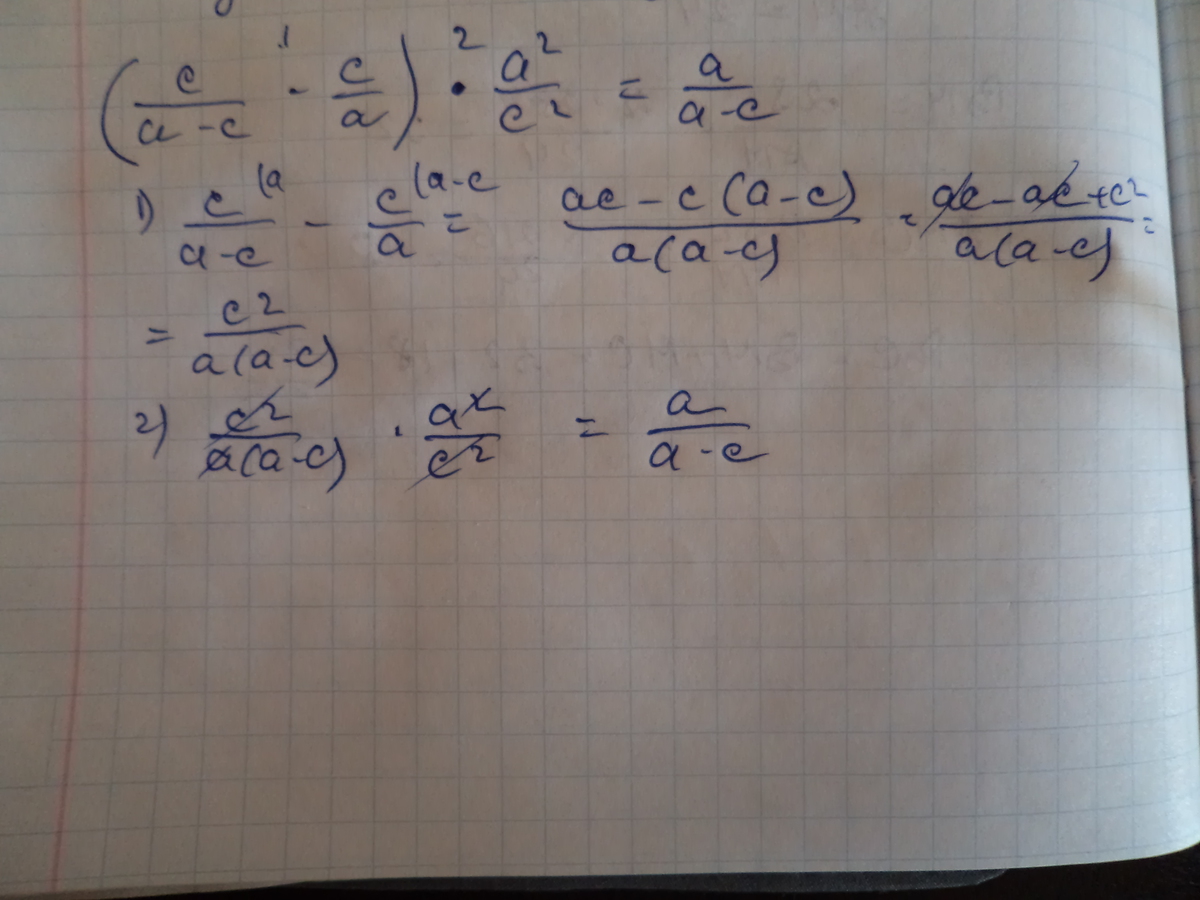 (c/(a-c) - c/a) · a²/c² = a/(a-c)
1) c/(a-c) (a - c/a (a-c = (ac-c(a-c))/(a(a-c)) = (ac-ac+c²)/(a(a-c)) =
= c²/(a(a-c))
2) c²/(a(a-c)) · a²/c² = a/(a-c)